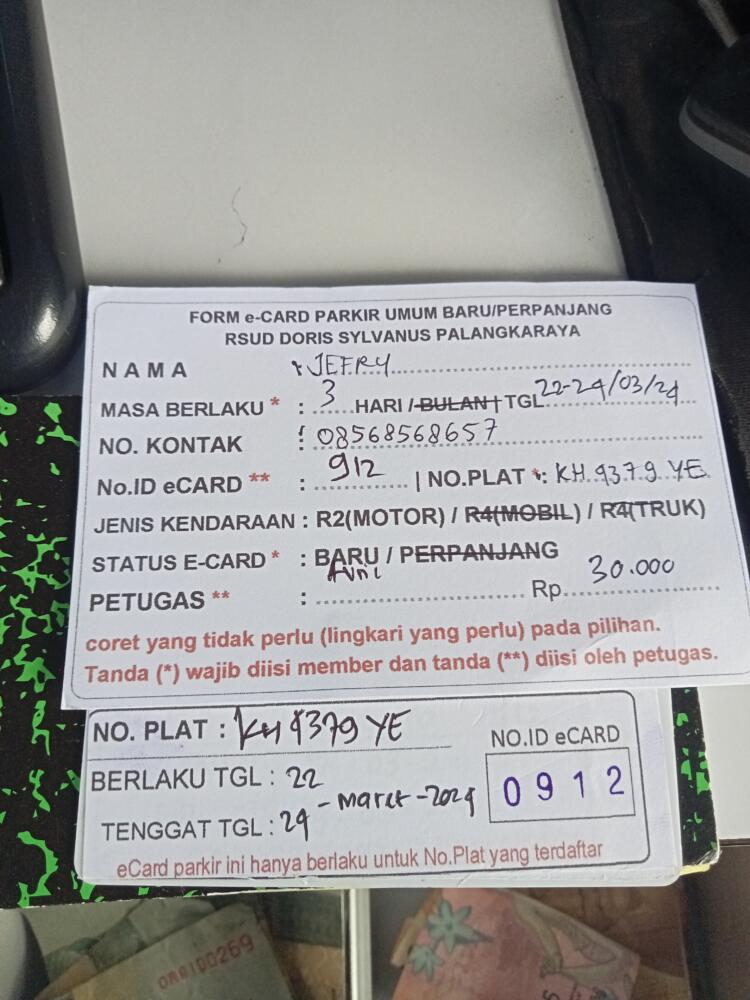 FORM e-CARD PARKIR UMUM BARU/PERPANJANG
RSUD DORIS SYLVANUS PALANGKARAYA
NAMA : JEFRY
MASA BERLAKU * : 3 HARI / BULAN | TGL 22-24/03/24
NO. KONTAK : 08568568657
No.ID eCARD ** : 912 | NO.PLAT *: KH 9379 YE
JENIS KENDARAAN : R2(MOTOR) / R4(MOBIL) / R4(TRUK)
STATUS E-CARD * : BARU / PERPANJANG
PETUGAS ** : Avni Rp. 30.000
coret yang tidak perlu (lingkari yang perlu) pada pilihan.
Tanda (*) wajib diisi member dan tanda (**) diisi oleh petugas.
NO. PLAT : KH 9379 YE
NO.ID eCARD
0912
BERLAKU TGL : 22
TENGGAT TGL : 24 - maret - 2024
eCard parkir ini hanya berlaku untuk No.Plat yang terdaftar
ORR100269